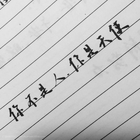 你不是人,你是天使